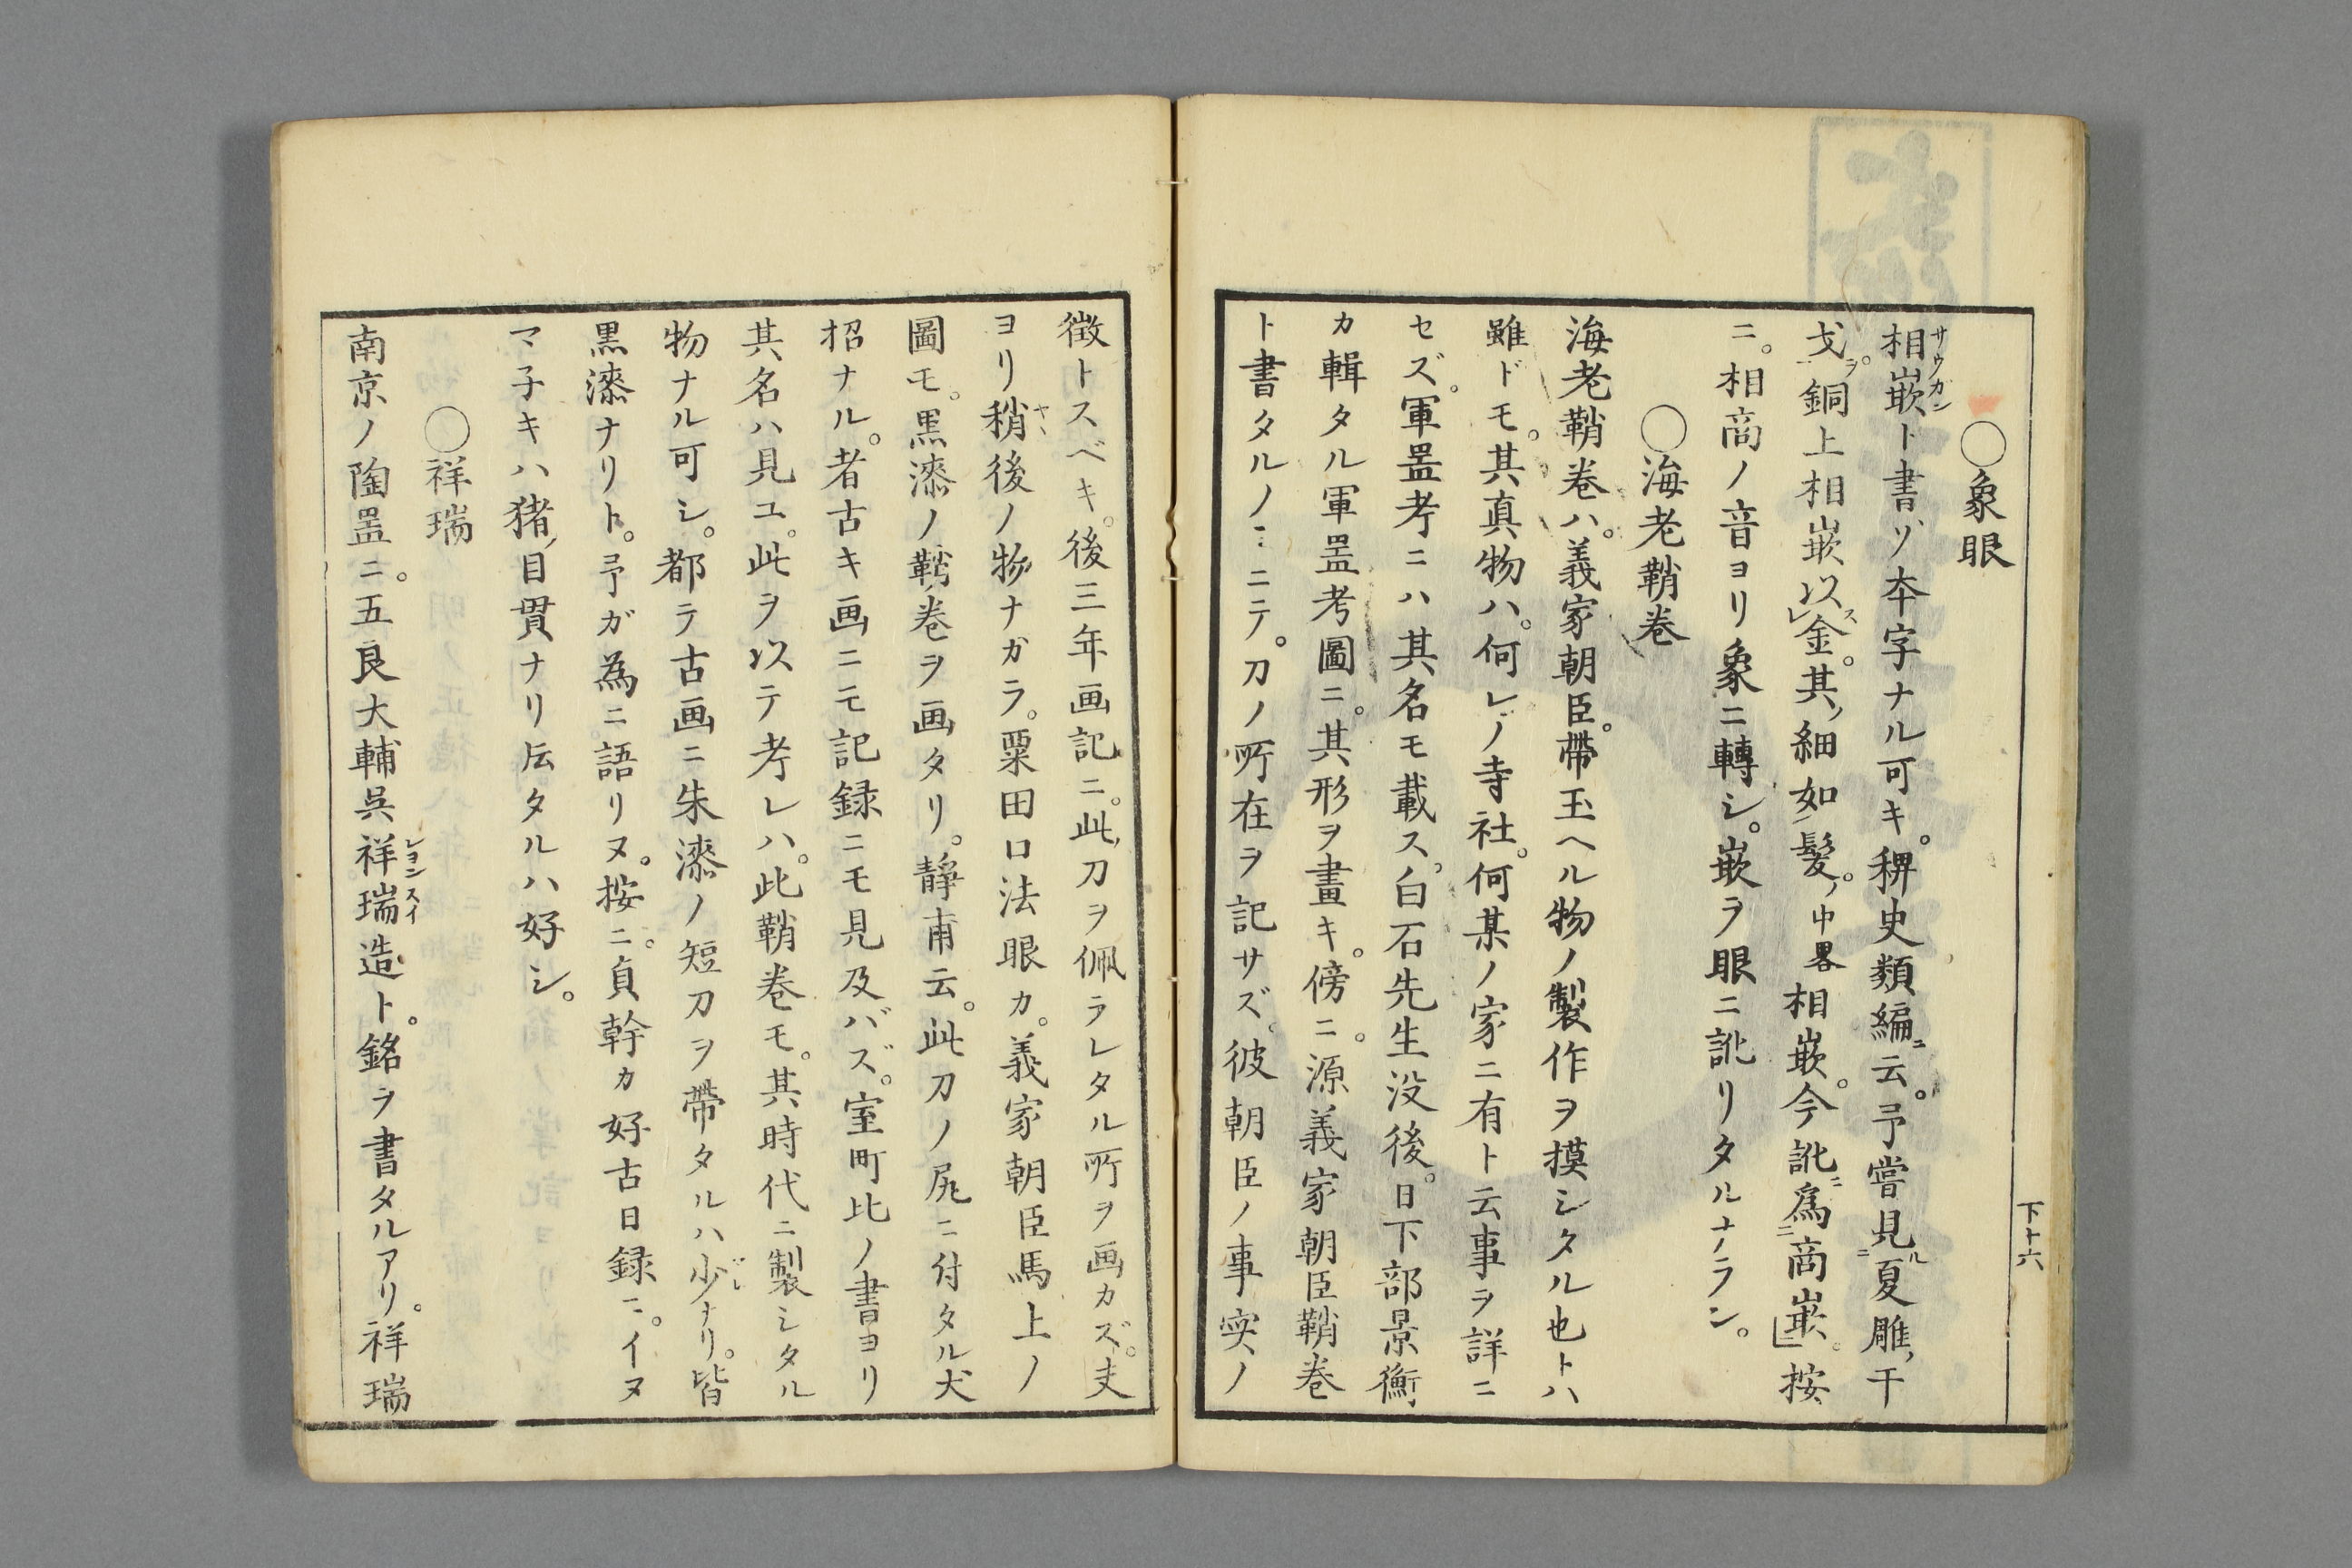 下十六
〇象眼
相嵌ト書ヅ本字ナル可キ。稗史類編ニ云。予嘗見ル夏雕ノ干
戈ヲ。銅上相嵌以金ス。其ノ細如髪。中畧相嵌。今訛ニ爲商嵌」。按
ニ。相商ノ音ヨリ象ニ轉シ。嵌ヲ眼ニ訛リタルナラン。
〇海老鞘巻
海老鞘巻ハ。義家朝臣。帶玉ヘル物ノ製作ヲ摸シタル也トハ
雖ドモ。其真物ハ。何レノ寺社。何某ノ家ニ有ト云事ヲ詳ニ
セズ。軍噐考ニハ其名モ載ス。白石先生没後。日下部景衡
カ輯タル軍噐考圖ニ。其形ヲ畫キ。傍ニ。源義家朝臣鞘巻
ト書タルノミニテ。刀ノ所在ヲ記サズ。彼朝臣ノ事実ノ
徴トスベキ。後三年画記ニ。此刀ヲ佩ラレタル所ヲ画カズ。夫
ヨリ稍後ノ物ナガラ。粟田口法眼カ。義家朝臣馬上ノ
圖モ。黒漆ノ鞘巻ヲ画タリ。靜甫云。此刀ノ尻ニ付タル犬
招ナル。者古キ画ニモ記録ニモ見及バズ。室町比ノ書ヨリ
其名ハ見ユ。此ヲ以テ考レハ。此鞘巻モ。其時代ニ製シタル
物ナル可シ。都テ古画ニ朱漆ノ短刀ヲ帶タルハ少ナリ。皆
黒漆ナリト。予ガ為ニ語リヌ。按ニ。貞幹カ好古日録ニ。イヌ
マ子キハ猪ノ目貫ナリ㕝タルハ好シ。
〇祥瑞
南京ノ陶噐ニ。五良大輔呉祥瑞造ト。銘ヲ書タルアリ。祥瑞